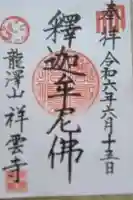 奉拝
令和六年六月十五日
釋迦牟尼佛
龍澤山 祥雲寺